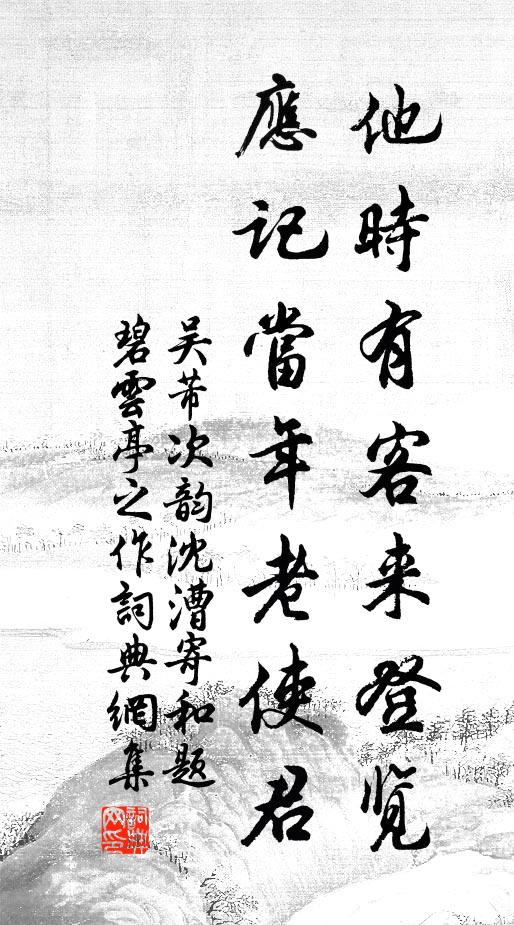 他時有客来登覽
應記當年老使君
吴芾次韵沈漕寄和題
碧雲亭之作詞典網集